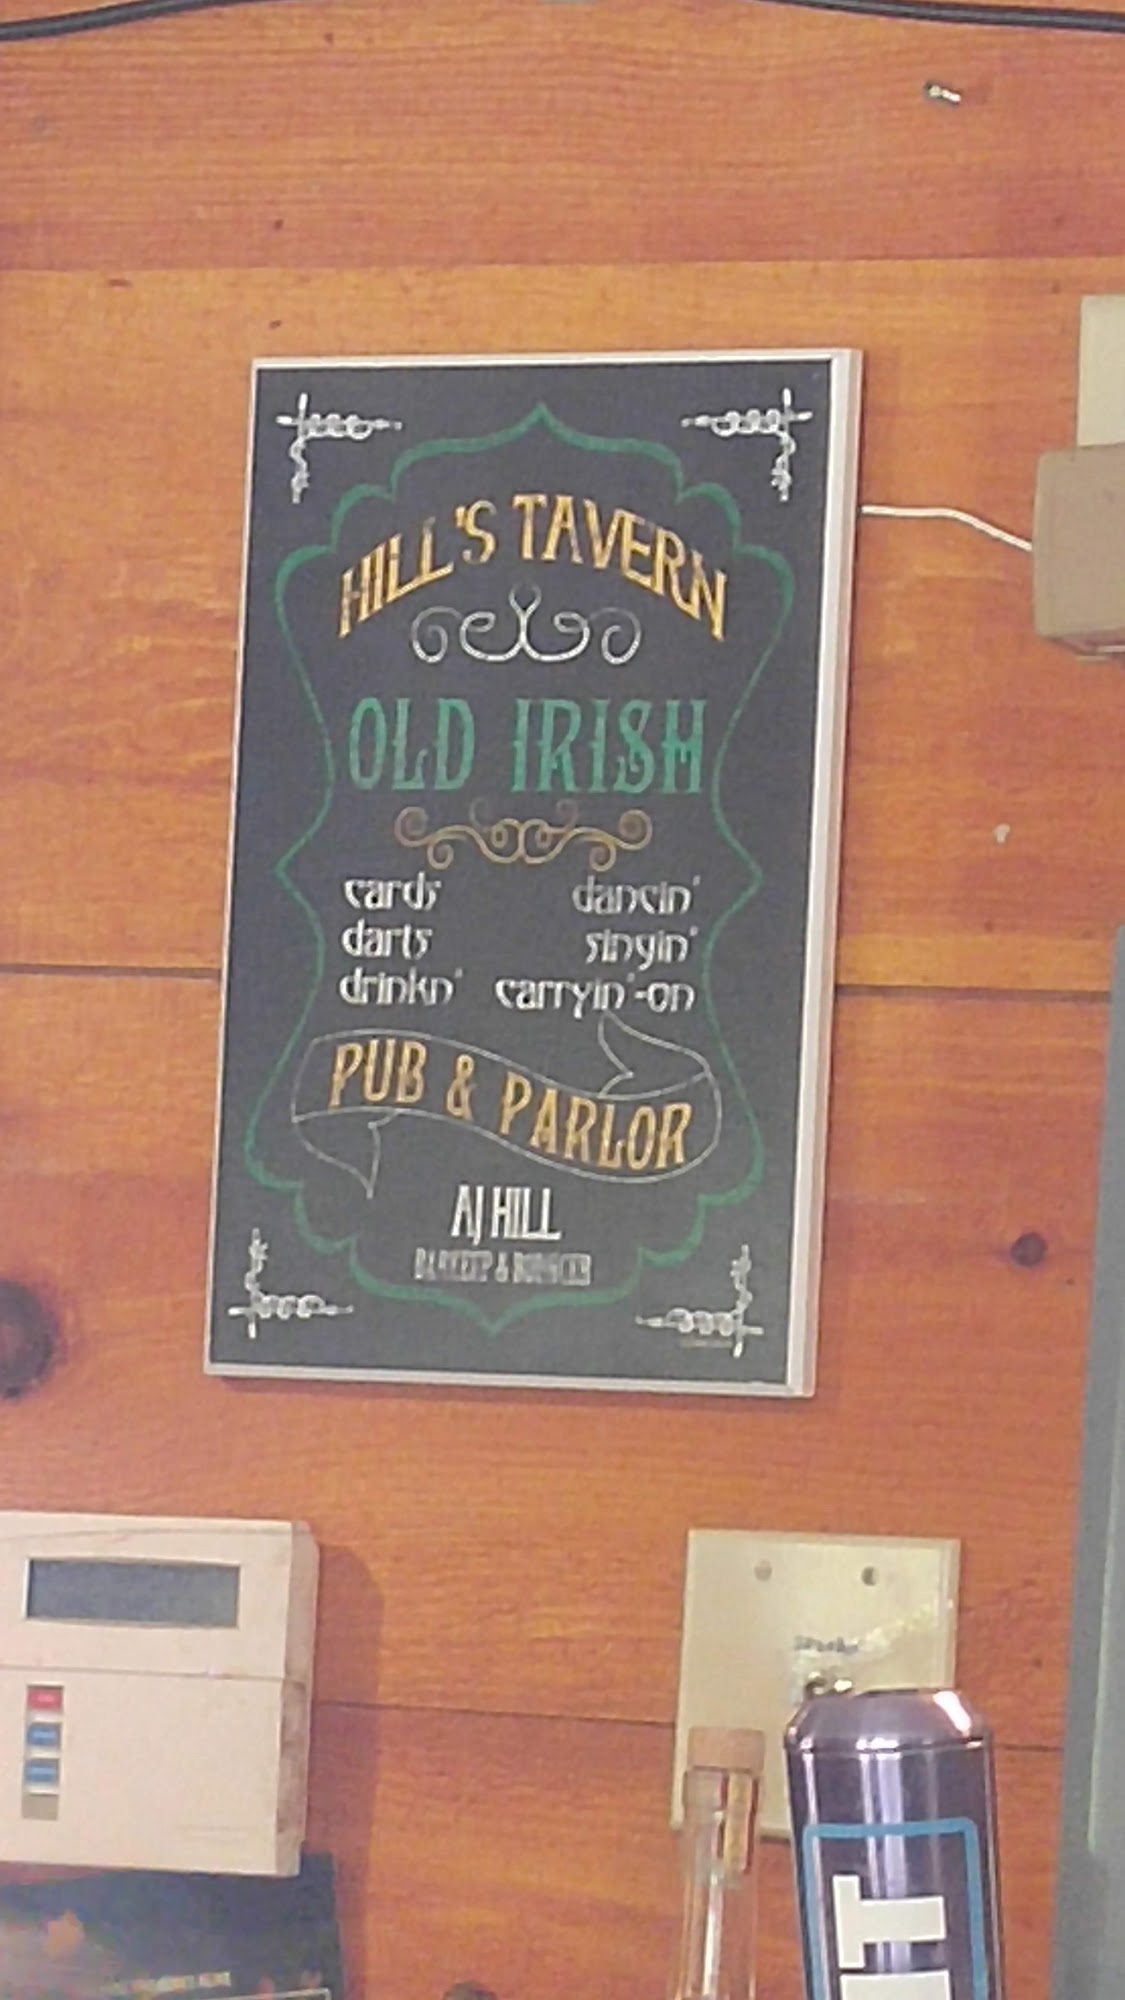 HILL'S TAVERN
OLD IRISH
cards dancin'
darts singin'
drinkn' carryin'-on
PUB & PARLOR
AJ HILL
BARKEEP & BOUNCER
IT